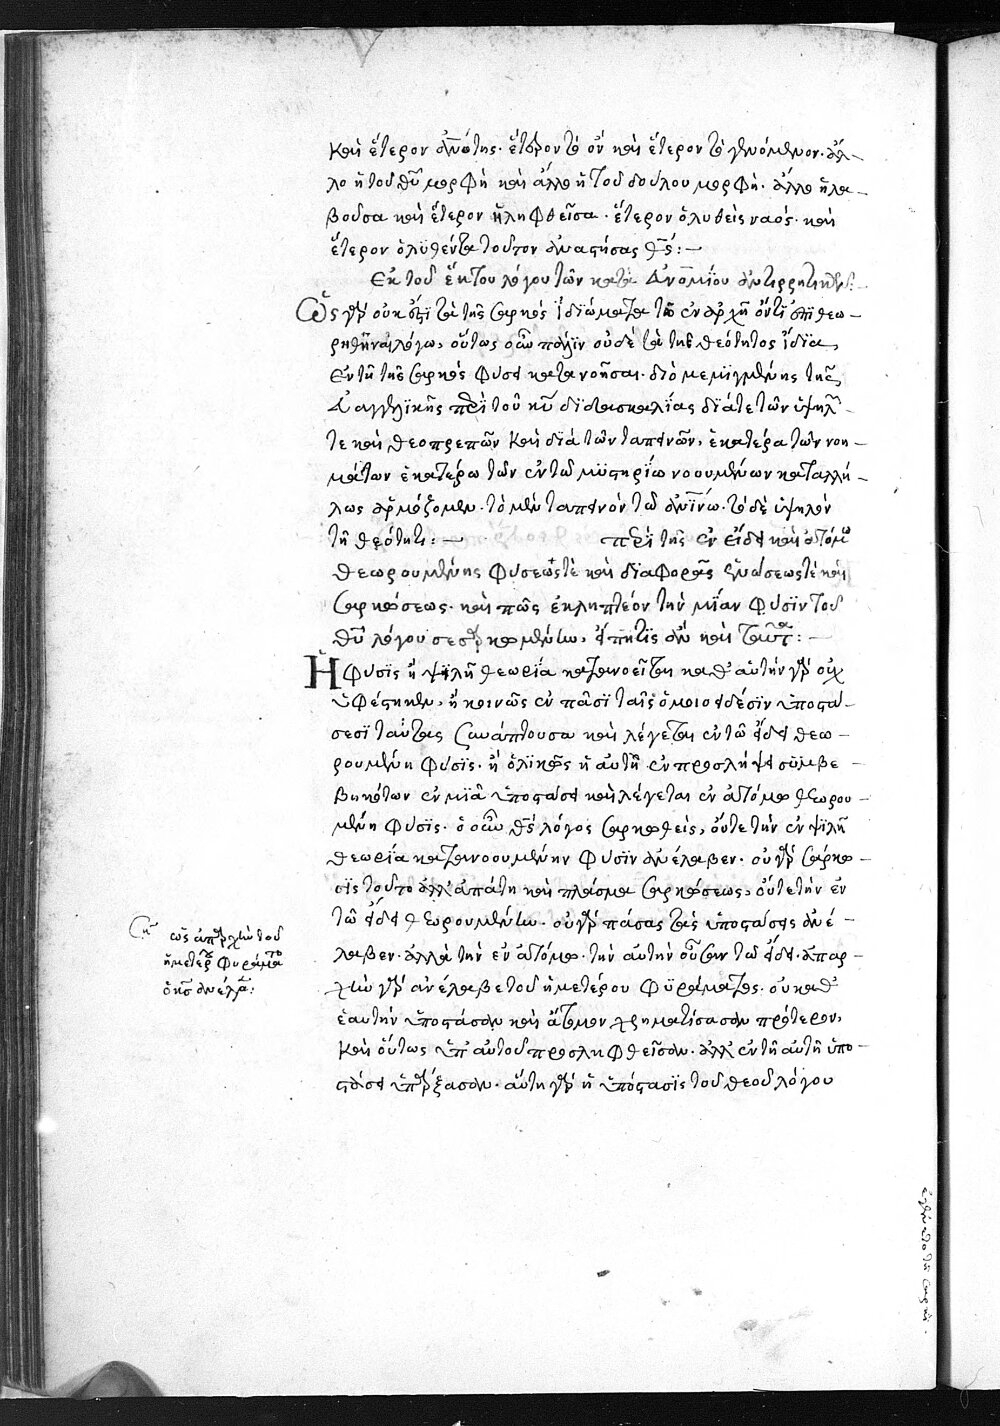 καὶ ἕτερον ἀν̅ό̅της· ἕτερον τὸ ὂν καὶ ἕτερον τὸ γενόμενον· ἄλ-
λο ἡ τοῦ θ̅υ̅ μορφὴ καὶ ἄλλο ἡ τοῦ δούλου μορφή· ἄλλο ἡ λα-
βοῦσα καὶ ἕτερον ἡ ληφθεῖσα· ἕτερον ὁ λυθεὶς ναός· καὶ
ἕτερον ὁ λυθέντα τοῦτον ἀναστήσας θ̅ς̅:-
Ἐκ τοῦ ἕκτου λόγου τῶν κατὰ Εὐνομίου ἀντιρρητικῶν:-
Ὡς γὰρ οὐκ ἔστι τὰ τῆς σαρκὸς ἰδιώματα τῷ ἐν ἀρχῇ ὄντι ἐπιθεω-
ρηθῆναι λόγω, οὕτως οὖν πάλιν οὐδὲ τὰ τῆς θεότητος ἴδια,
ἐν τῇ τῆς σαρκὸς φύσει κατανοῆσαι· διὸ μεμιγμένης τῆς
εὐαγγελικῆς περὶ τοῦ κ̅υ̅ διδασκαλίας διά τε τῶν ὑψηλῶν
τε καὶ θεοπρεπῶν καὶ διὰ τῶν ταπεινῶν, ἑκατέρα τῶν νοη-
μάτων ἑκατέρω τῶν ἐν τῶ μυστηρίω νοουμένων καταλλή-
λως ἁρμόζομεν· τὸ μὲν ταπεινὸν τῶ ἀν̅ί̅νω· τὸ δὲ ὑψηλὸν
τῇ θεότητι:- περὶ τῆς ἐν εἴδει καὶ ἀτόμω
θεωρουμένης φύσεώς τε καὶ διαφορᾶς ἑνώσεώς τε καὶ
σαρκώσεως· καὶ πῶς ἐκληπτέον τὴν μίαν φύσιν τοῦ
θ̅υ̅ λόγου σεσαρκωμένην,
Ἡ φύσις ἢ ψιλῆ θεωρία κατανοεῖται καθ' αὑτὴν γὰρ οὐχ
ὑφέστηκεν, ἢ κοινῶς ἐν πᾶσι ταῖς ὁμοιοειδέσιν ὑποστά-
σεσι ταύτας συνάπτουσα καὶ λέγεται ἐν τῶ εἴδει θεω-
ρουμένη φύσις· ἢ ὁλικῶς ἡ αὐτὴ ἐν προσλήψει συμβε-
βηκότων ἐν μιᾶ ὑποστάσει καὶ λέγεται ἐν ἀτόμω θεωρου-
μένη φύσις· ὁ οὖν θ̅ς̅ λόγος σαρκωθεὶς, οὔτε τὴν ἐν ψιλῆ
θεωρία κατανοουμένην φύσιν ἀνέλαβεν· οὐ γὰρ σάρκω-
σις τοῦτο ἀλλ' ἀπάτη καὶ πλάσμα σαρκώσεως, οὔτε τὴν ἐν
τῶ εἴδει θεωρουμένην· οὐ γὰρ πάσας τὰς ὑποστάσεις ἀνέ-
λαβεν· ἀλλὰ τὴν ἐν ἀτόμω· τὴν αὐτὴν οὖσαν τῶ εἴδει· ἀπαρ-
χὴν γὰρ ἀνέλαβε τοῦ ἡμετέρου φυράματος· οὐ καθ'
ἑαυτὴν ὑποστᾶσαν καὶ ἄτομον χρηματίσασαν πρότερον,
καὶ οὕτως ὑπ' αὐτοῦ προσληφθεῖσαν· ἀλλ' ἐν τῇ αὐτῇ ὑπο-
στάσει ὑπάρξασαν· αὕτη γὰρ ἡ ὑπόστασις τοῦ θεοῦ λόγου
ὡς ἀπαρχὴν τοῦ
ἡμετέρου φυράματος